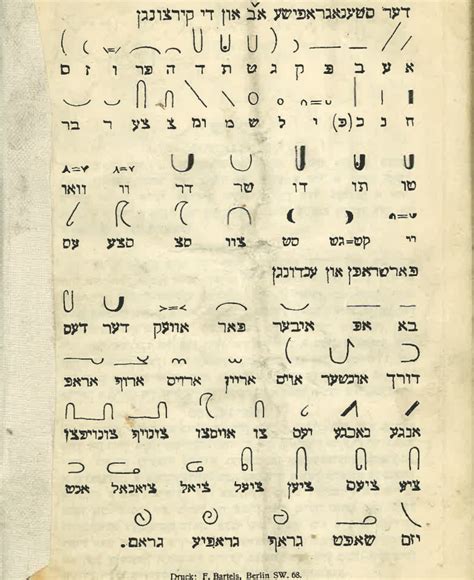 דער סטענאגראפישע אב און די קירצונגן
א ע ב פ ק ג ט ת ד ה פר ו ז ם
ח נ כ (פּ) י ל ש מ ומ צ צע ר בר
טו תו דו שר דר וו וואו
יי קט=גט סט צוו סצ סצע עם
פארטראפן און ענדונגן
בא אפ איבער פאר אוועק דער דעם
דורך אונטער אוים אריין ארוים ארוף אראפ
אנגע נאכגע יעם צו אויסצו צונויף צונויפצו
ציע ציעם ציען ציעל ציאל ציאנאל אנט
יזם שאפט גראף גראפיע גראם.
Druck: F. Bartels, Berlin SW. 68.